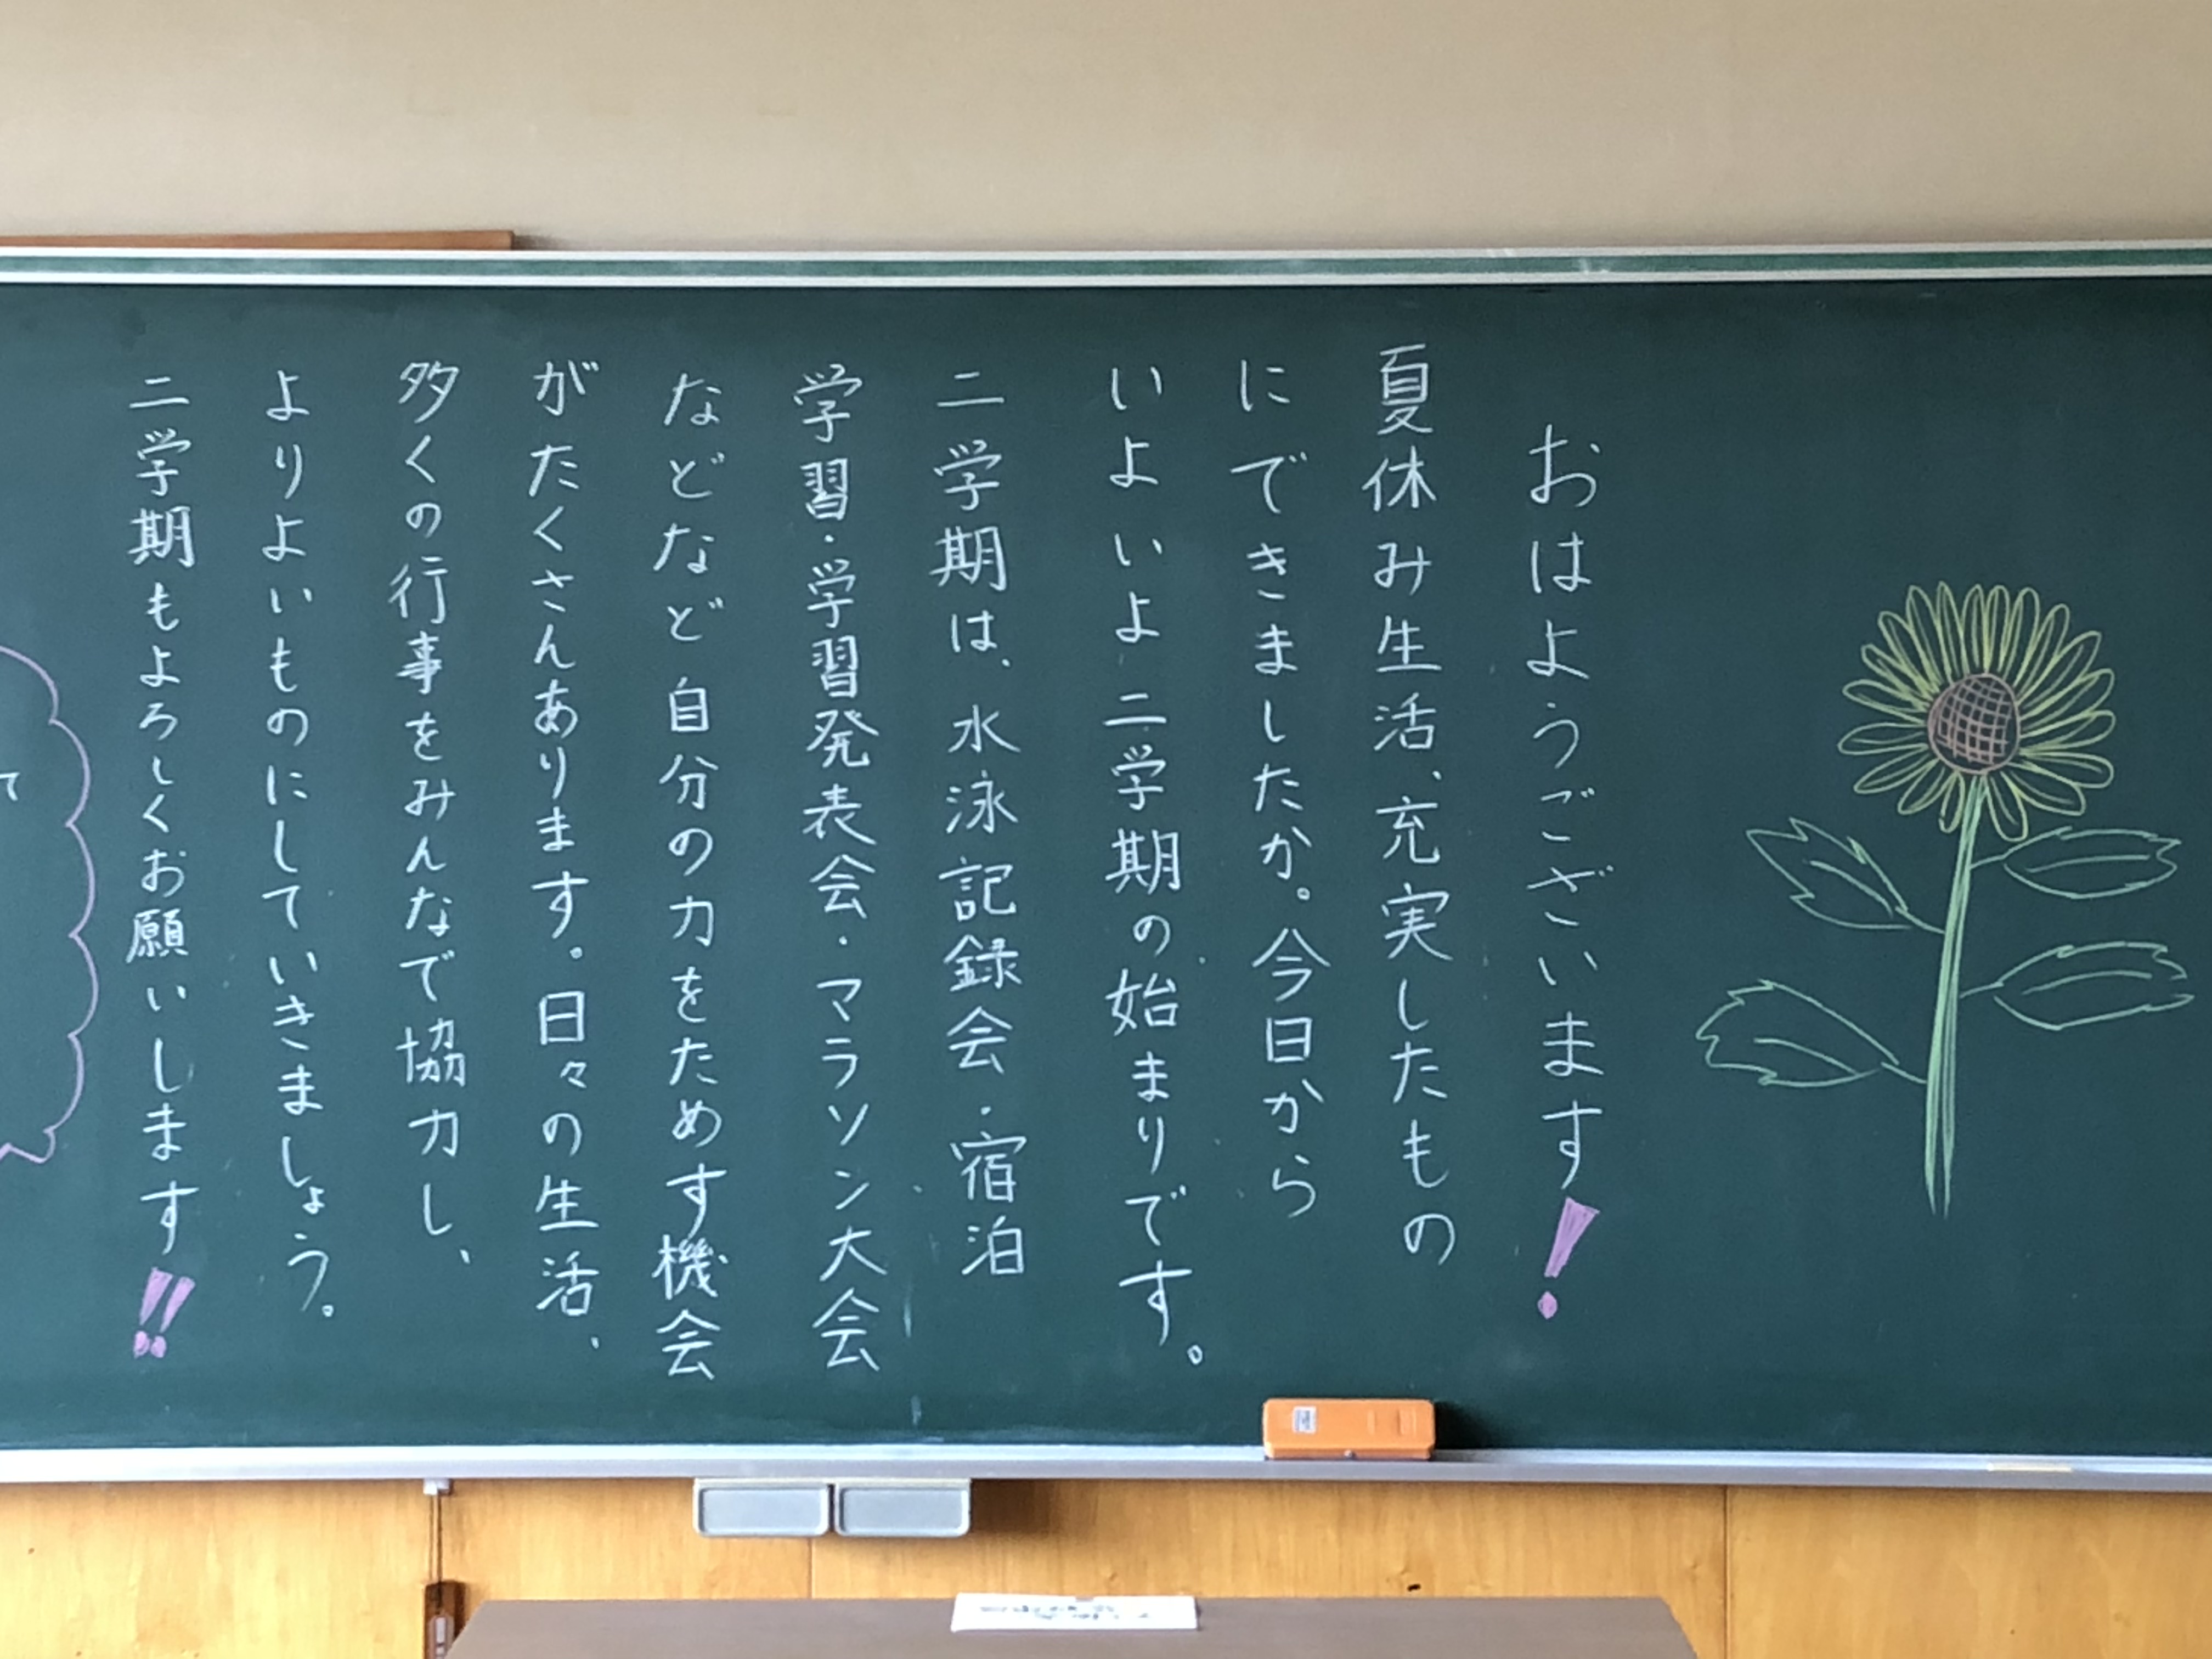 おはようございます!
夏休み生活、充実したもの
にできましたか。今日から
いよいよ二学期の始まりです。
二学期は、水泳記録会・宿泊
学習・学習発表会・マラソン大会
などなど自分の力をためす機会
がたくさんあります。日々の生活、
多くの行事をみんなで協力し、
よりよいものにしていきましょう。
二学期もよろしくお願いします!!